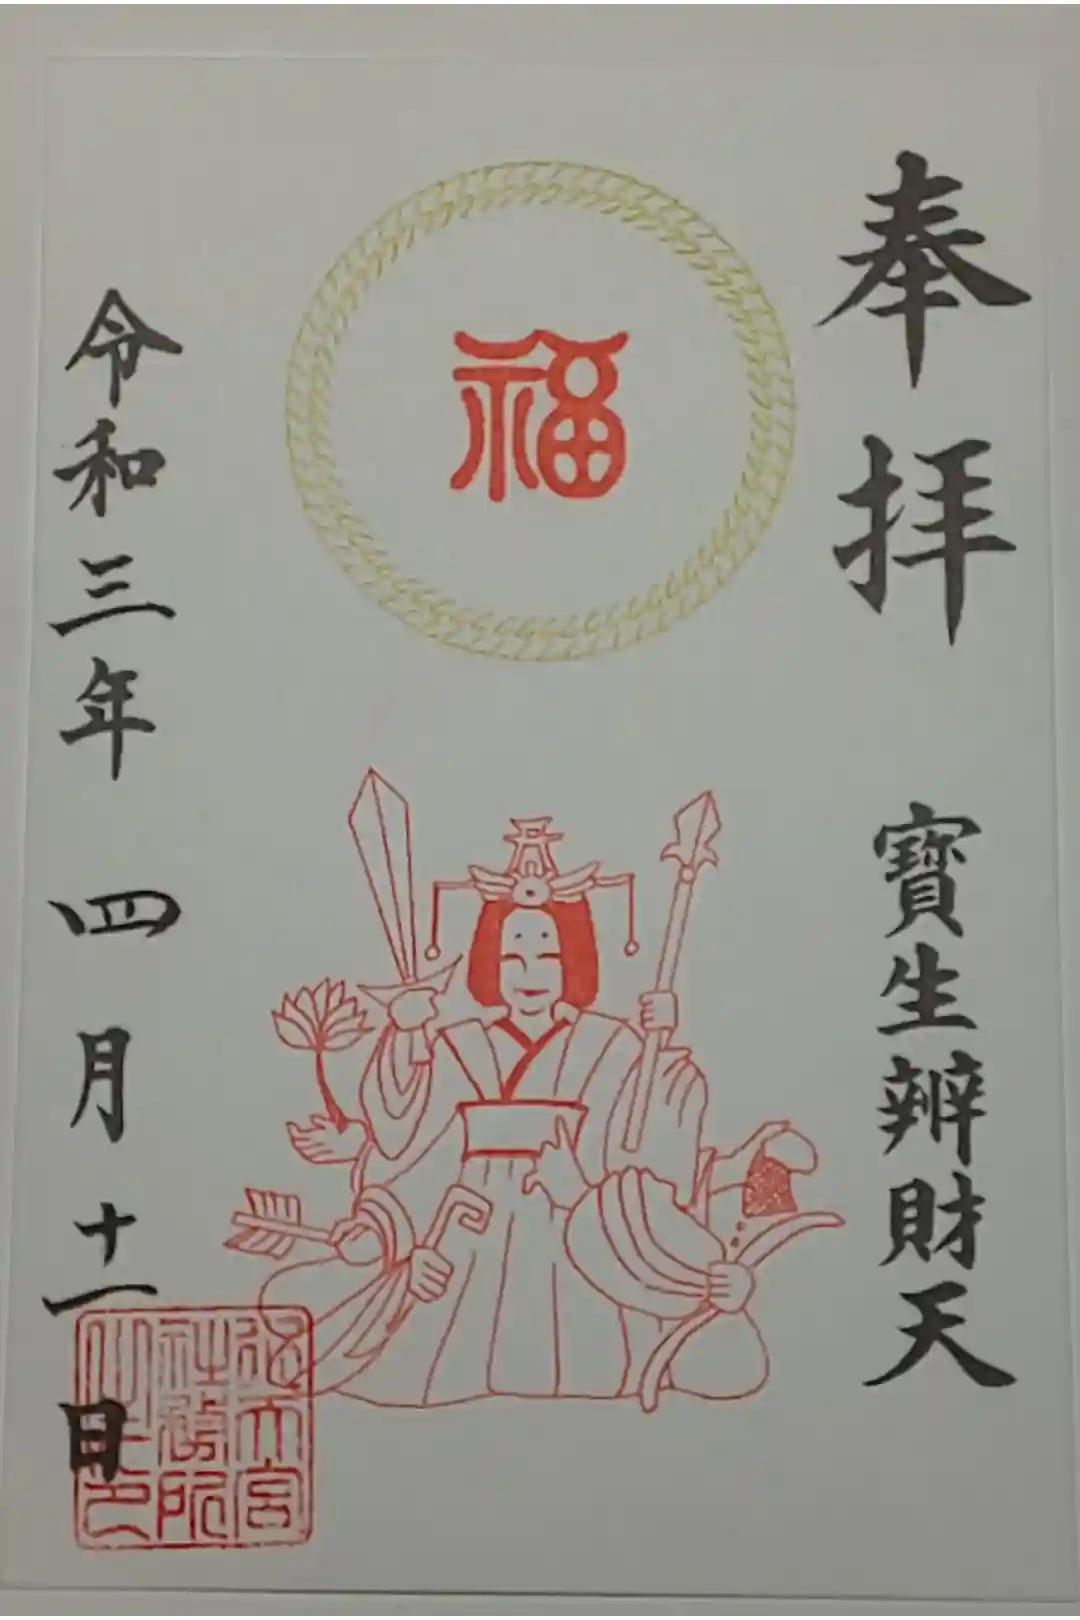 奉拝
寶生辨財天
福
令和三年 四月十一日